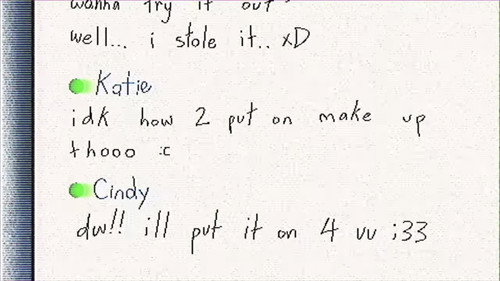 wanna try it out?
well... i stole it.. xD
Katie
idk how 2 put on make up
thooo :c
Cindy
dw!! ill put it on 4 uu ;33